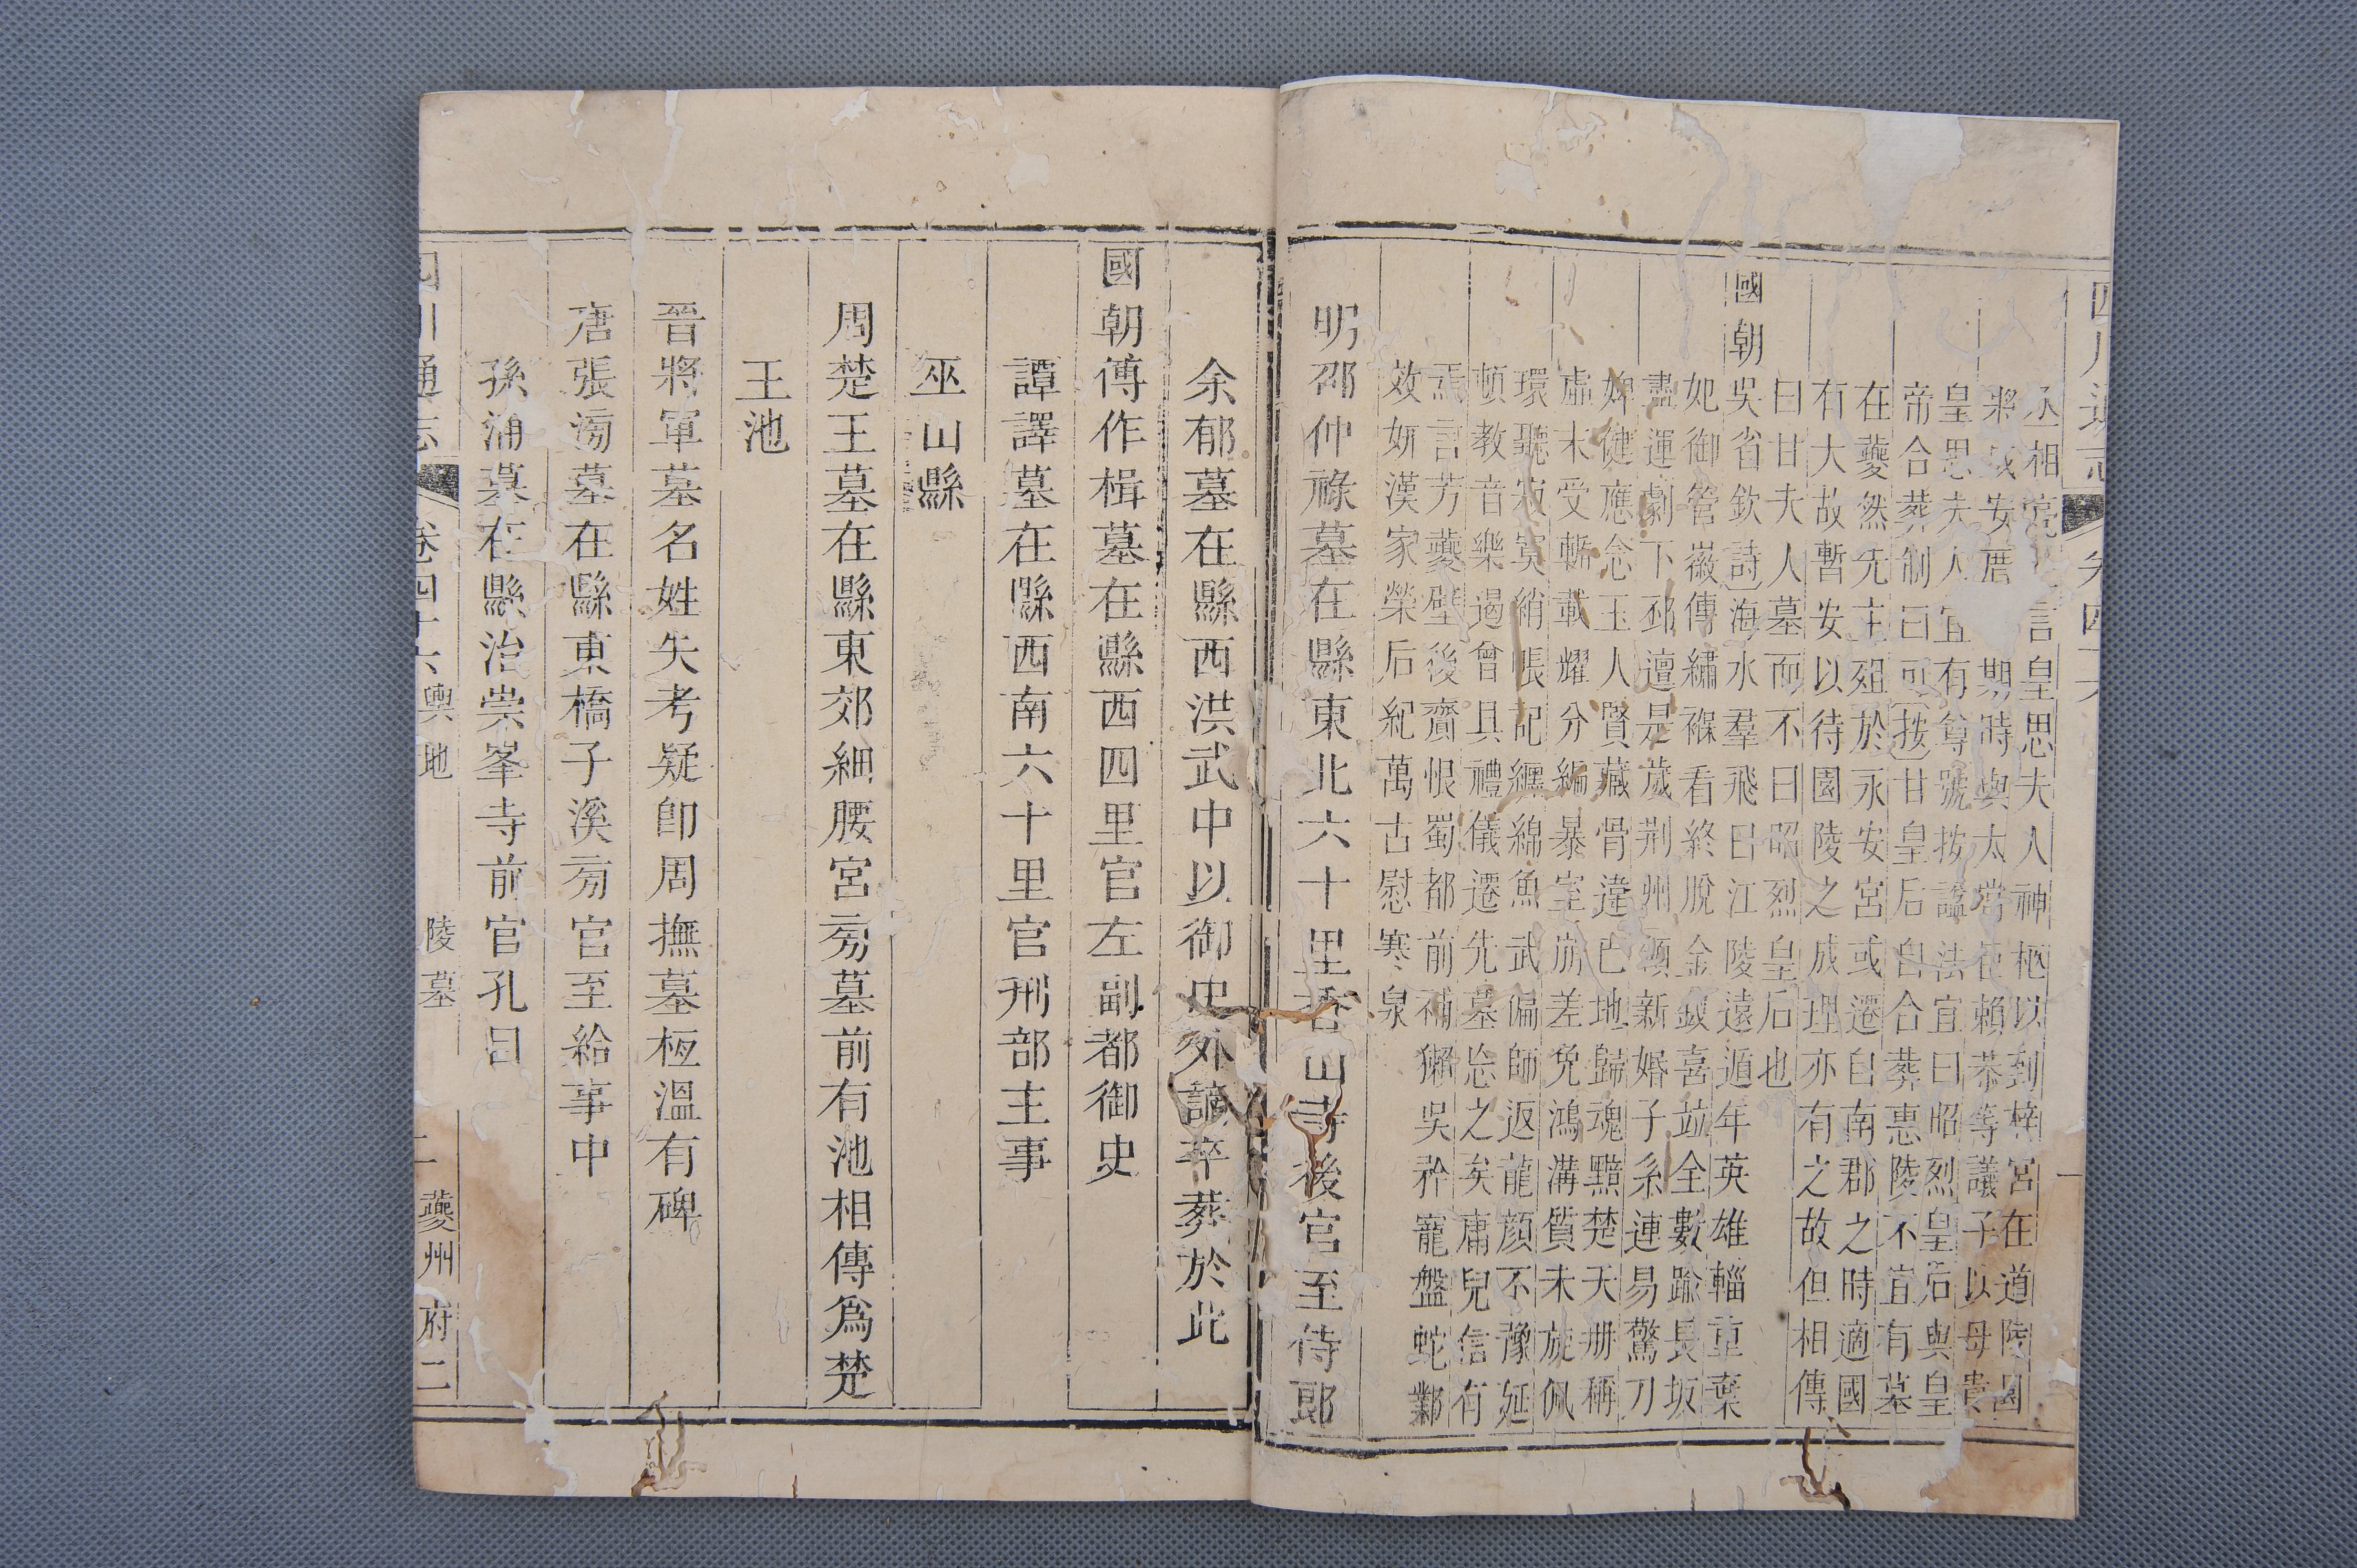 四川通志 卷四十六 一
丞相亮 言皇思夫人神柩以到梓宮在道陵園
將成安厝 期時與太常臣賴恭等議子以母貴
皇思夫人宜有尊號按諡法宜曰昭烈皇后與皇
帝合葬制曰可按甘皇后自合葬惠陵不宜有墓
在夔然先主殂於永安宮或遷自南郡之時適國
有大故暫安以待園陵之成理亦有之故但相傳
曰甘夫人墓而不曰昭烈皇后也
國朝吳省欽詩海水羣飛日江陵遠遁年英雄輜重葉
妃御管徽傳繡褓看終脫金釵喜竝全數踰長坂
盡運劇下邳邅是歲荆州領新婚子系連易驚刀
婢健應念玉人賢藏骨違巴地歸魂黯楚天册稱
虛末受輴載耀分編暴室崩差免鴻溝質未旋佩
環聽寂寞綃帳記纏綿魚武偏師返龍顏不豫延
頓教音樂遏曾具禮儀遷先墓忘之矣庸兒信有
焉言芳夔壁後齎恨蜀都前補獺吳矜寵盤蛇鄴
效妍漢家榮后紀萬古慰寒泉
明邵仲祿墓在縣東北六十里香山寺後官至侍郎
余郁墓在縣西洪武中以御史外謫卒葬於此
國朝傅作楫墓在縣西四里官左副都御史
譚譯墓在縣西南六十里官刑部主事
巫山縣
周楚王墓在縣東郊細腰宮旁墓前有池相傳爲楚
王池
晉將軍墓名姓失考疑卽周撫墓桓溫有碑
唐張 墓在縣東橋子溪旁官至給事中
孫浦墓在縣治崇峯寺前官孔目
四川通志 卷四十六 輿地 陵墓 二 夔州府二